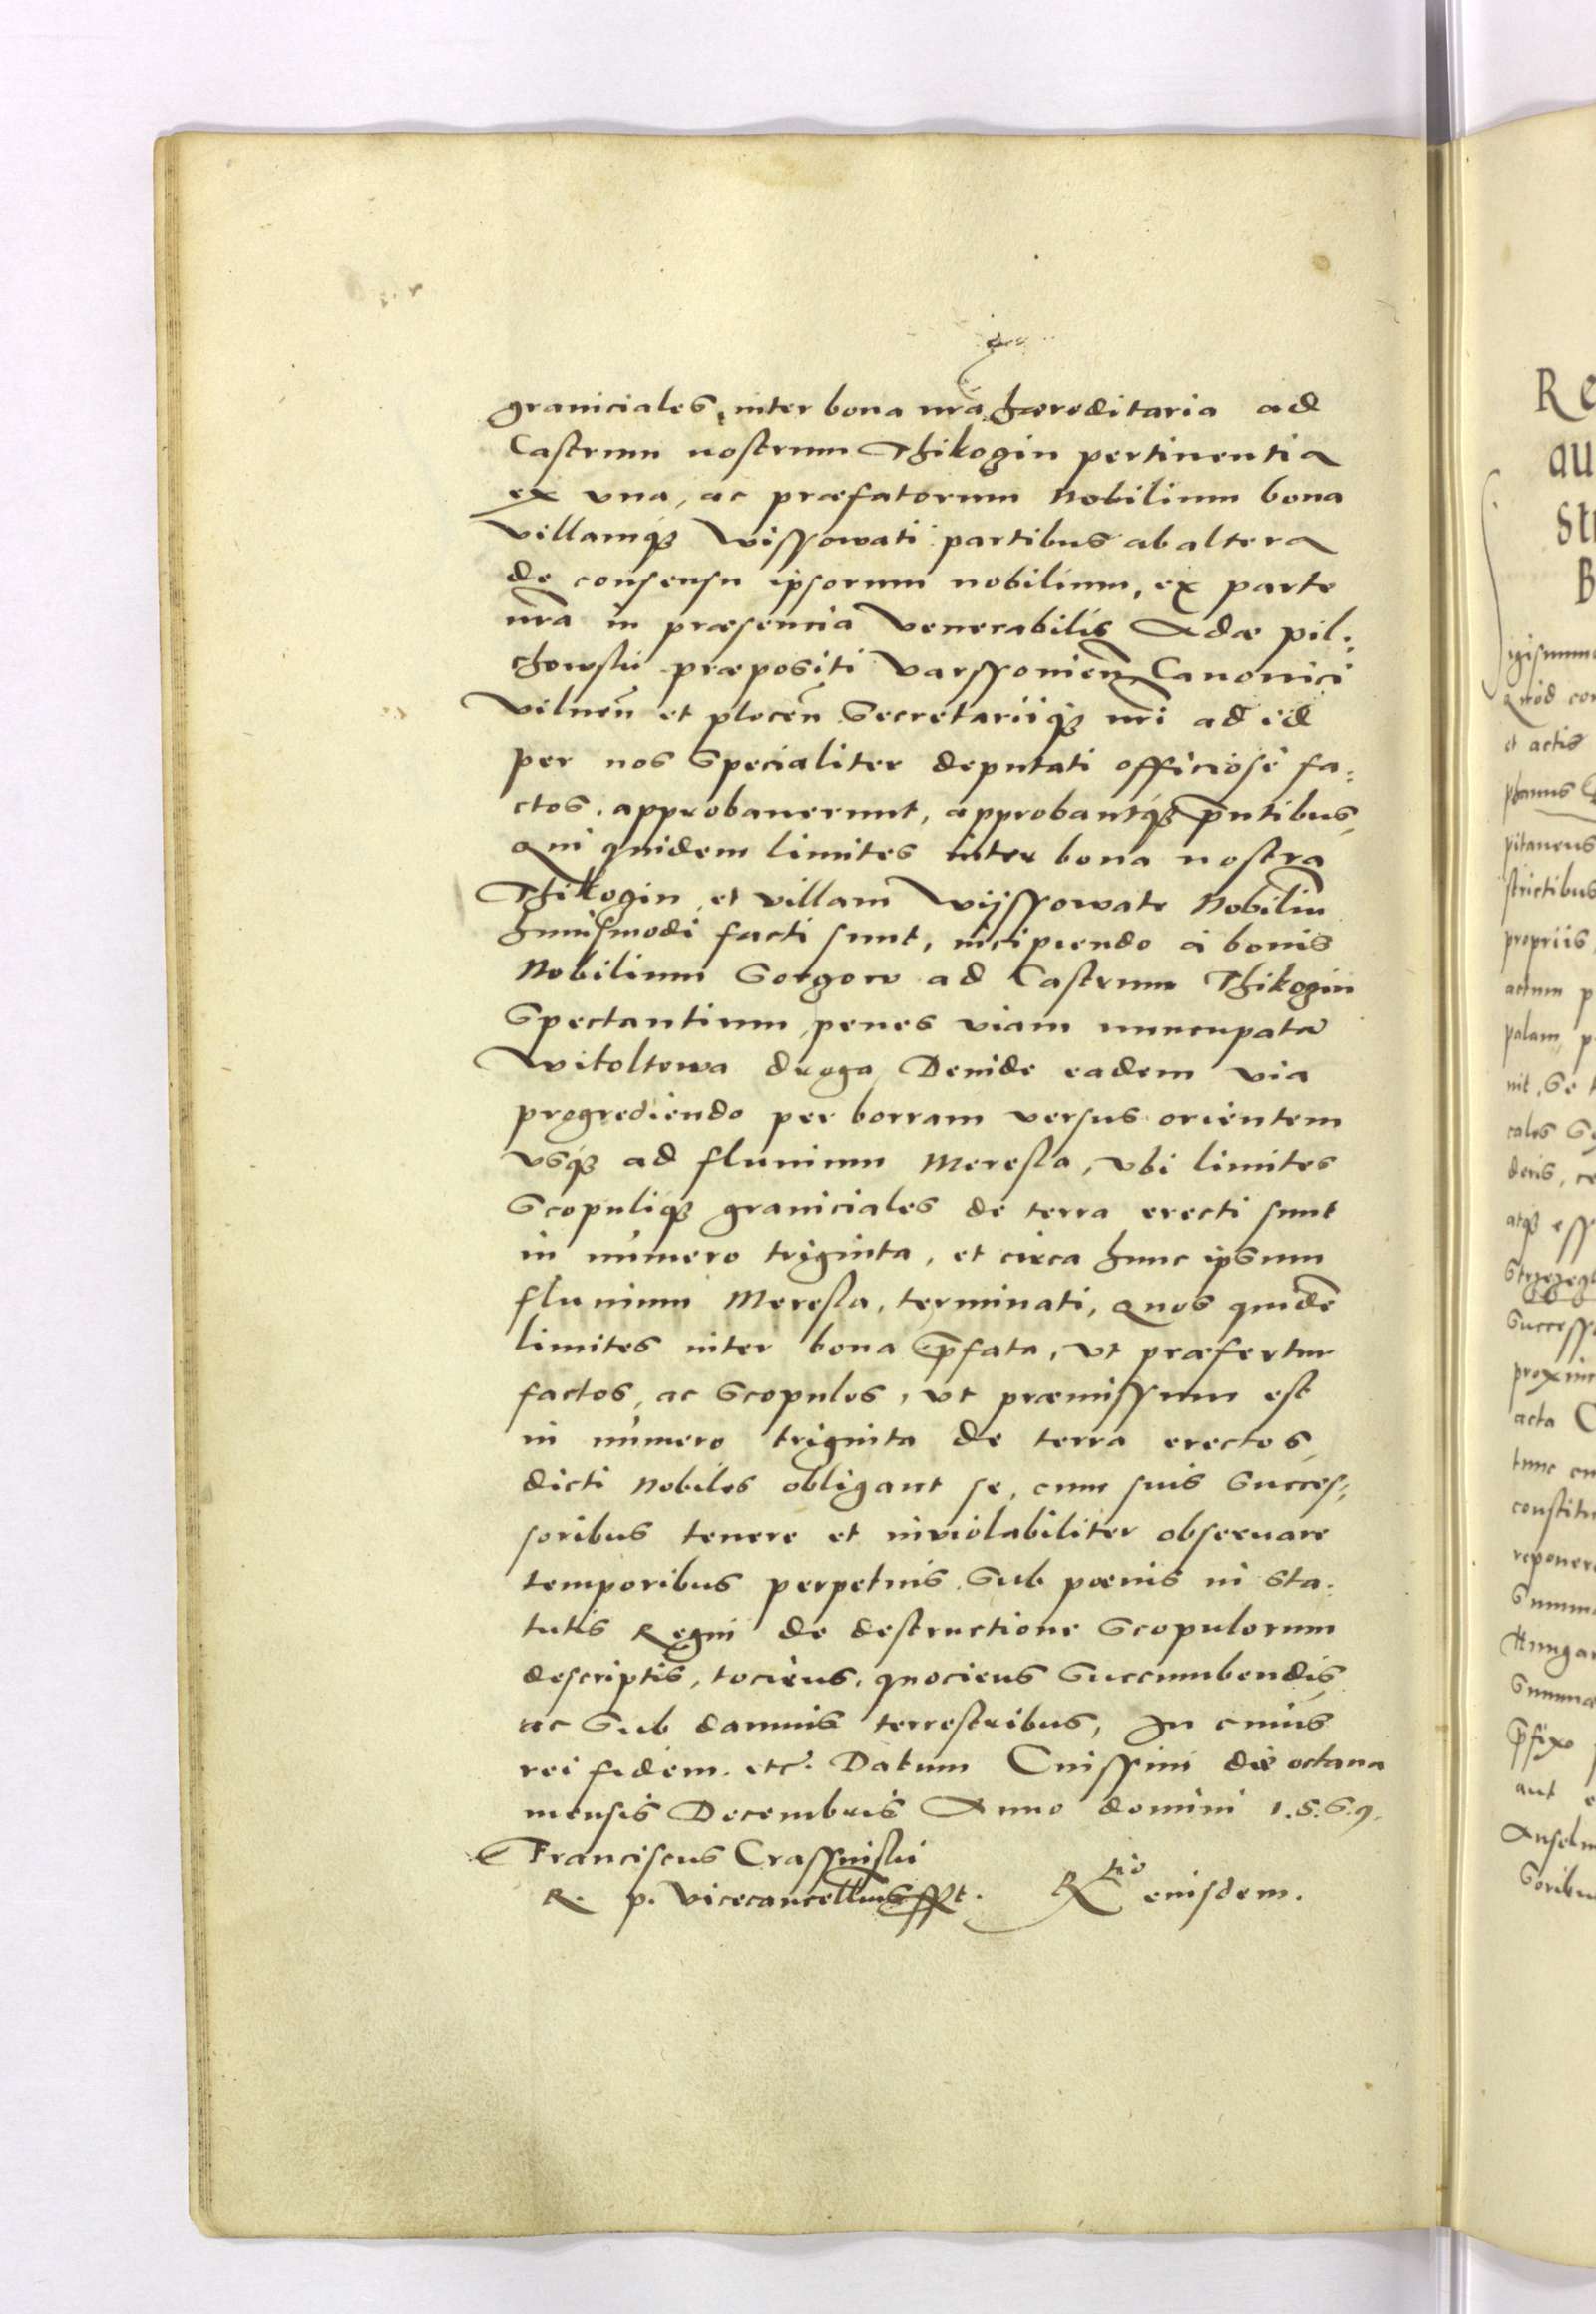 graniciales, inter bona nra hæreditaria ad
Castrum nostrum Thikogin pertinentia
ex vna, ac præfatorum Nobilium bona
villamq3 Wissowati partibus ab altera
de consensu ipsorum nobilium, ex parte
nra in præsencia Venerabilis Adæ Pil-
chowski præpositi Varssouien Canonici
Vilnen et plocen Secretariiq3 nri ad id
per nos specialiter deputati officiosè fa-
ctos. approbauerunt, approbantq3 pntibus,
Qui quidem limites inter bona nostra
Thikogin, et villam Wijssowate Nobiliu
huiusmodi facti sunt, incipiendo à bonis
Nobilium Gorgow ad Castrum Thikogin
spectantium, penes viam nuncupata
Witoltowa droga, Deinde eadem via
progrediendo per borram versus orientem
vsq3 ad fluuium Mereska, vbi limites
Scopuliq3 graniciales de terra erecti sunt
in numero triginta, et circa hunc ipsum
fluuium Mereska, terminati, Quos quide
limites inter bona pfata, vt præfertur
factos, ac Scopulos, vt præmissum est
in numero triginta de terra erectos,
dicti Nobiles obligant se, cum suis succes-
soribus tenere et inuiolabiliter obseruare
temporibus perpetuis, sub pœnis in sta-
tutis Regni de destructione Scopulorum
descriptis, tociens, quociens succumbendis
ac sub damnis terrestribus, In cuius
rei fidem. etc. Datum Cnissini die octaua
mensis Decembris Anno domini 1.5.6.9.
Franciscus Crassinski
R. p. Vicecancellarius sspt. Rtio eiusdem.
Re
au
St
B
igismun
Quod co
et actis
pitaneus
strictibus
propriis
actum p
palam, p
nit, se
cales
deris, ce
atq3 ess
Success
proxim
acta C
tunc
constitu
reponer
Summ
Hungar
Summa
pfixo
aut
Anselm
soribu